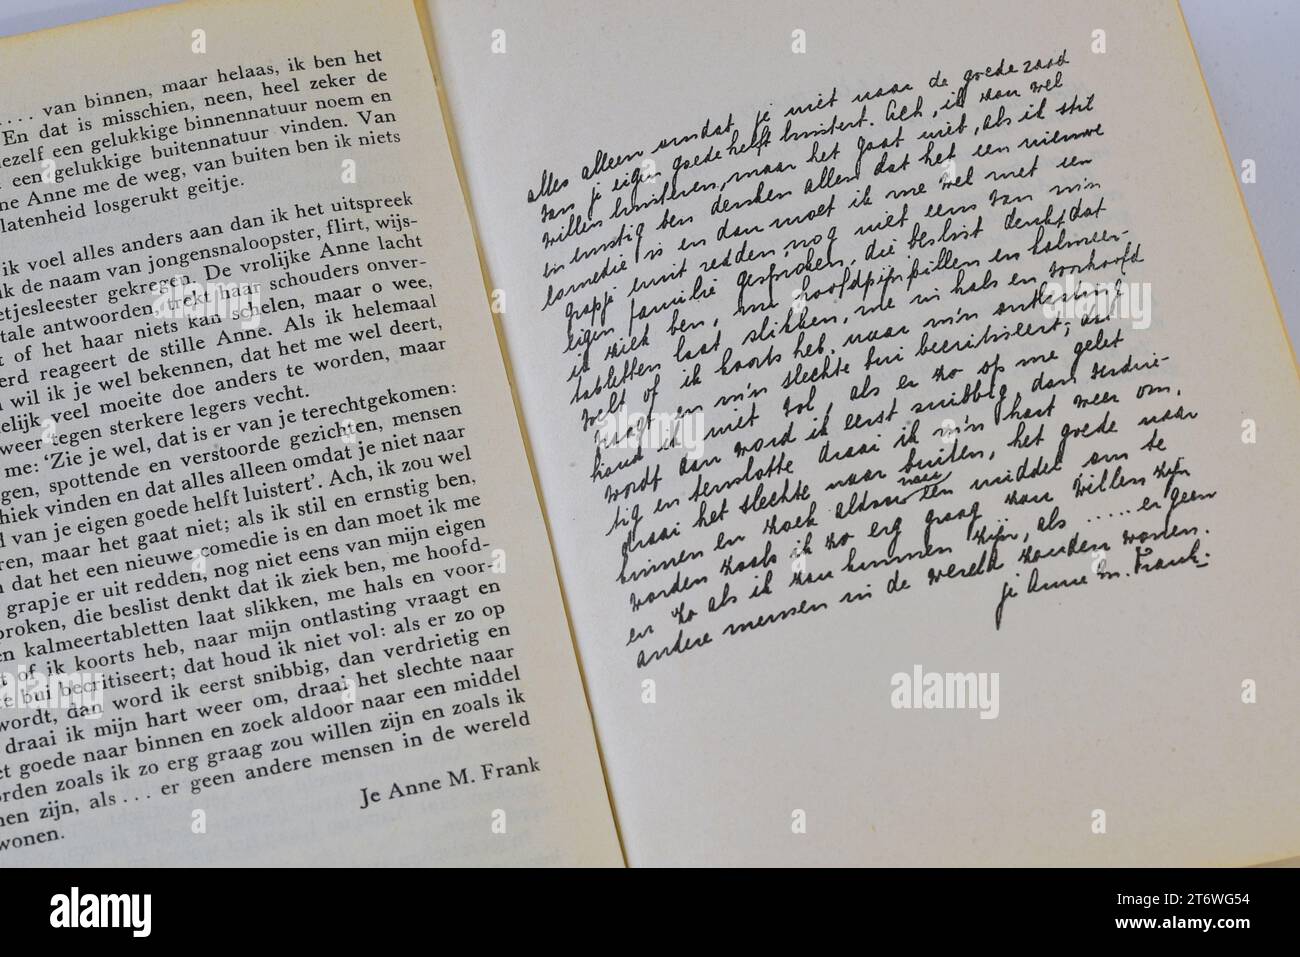 . . . . van binnen, maar helaas, ik ben het
En dat is misschien, neen, heel zeker de
ezelf een gelukkige binnennatuur noem en
een gelukkige buitennatuur vinden. Van
ne Anne me de weg, van buiten ben ik niets
latenheid losgerukt geitje.
ik voel alles anders aan dan ik het uitspreek
k de naam van jongensnaloopster, flirt, wijs-
etjesleester gekregen. De vrolijke Anne lacht
tale antwoorden, trekt haar schouders onver-
t of het haar niets kan schelen, maar o wee,
erd reageert de stille Anne. Als ik helemaal
wil ik je wel bekennen, dat het me wel deert,
elijk veel moeite doe anders te worden, maar
weer tegen sterkere legers vecht.
me: ‘Zie je wel, dat is er van je terechtgekomen:
gen, spottende en verstoorde gezichten, mensen
hiek vinden en dat alles alleen omdat je niet naar
d van je eigen goede helft luistert’. Ach, ik zou wel
ren, maar het gaat niet; als ik stil en ernstig ben,
n dat het een nieuwe comedie is en dan moet ik me
grapje er uit redden, nog niet eens van mijn eigen
proken, die beslist denkt dat ik ziek ben, me hoofd-
en kalmeertabletten laat slikken, me hals en voor-
t of ik koorts heb, naar mijn ontlasting vraagt en
te bui becritiseert; dat houd ik niet vol: als er zo op
wordt, dan word ik eerst snibbig, dan verdrietig en
draai ik mijn hart weer om, draai het slechte naar
et goede naar binnen en zoek aldoor naar een middel
orden zoals ik zo erg graag zou willen zijn en zoals ik
nen zijn, als . . . er geen andere mensen in de wereld
wonen.
Je Anne M. Frank
alles alleen omdat je niet naar de goede raad
van je eigen goede helft luistert. Ach, ik zou wel
willen luisteren, maar het gaat niet, als ik stil
en ernstig ben denken allen dat het een nieuwe
comedie is en dan moet ik me wel met een
grapje eruit redden, nog niet eens van m'n
eigen familie gesproken, die beslist denkt dat
ik ziek ben, me hoofdpijnpillen en kalmeer-
tabletten laat slikken, me in hals en voorhoofd
voelt of ik koorts heb, naar m'n ontlasting
vraagt en m'n slechte bui becritiseert; dat
houd ik niet vol, als er zo op me gelet
wordt dan word ik eerst snibbig, dan verdrie-
tig en tenslotte draai ik m'n hart weer om,
draai het slechte naar buiten, het goede naar
binnen en zoek aldoor naar een middel om te
worden zoals ik zo erg graag zou willen zijn
en zo als ik zou kunnen zijn, als ..... er geen
andere mensen in de wereld zouden wonen.
je Anne M. Frank.
alamy
alamy
Image ID: 2T6WG54
www.alamy.com